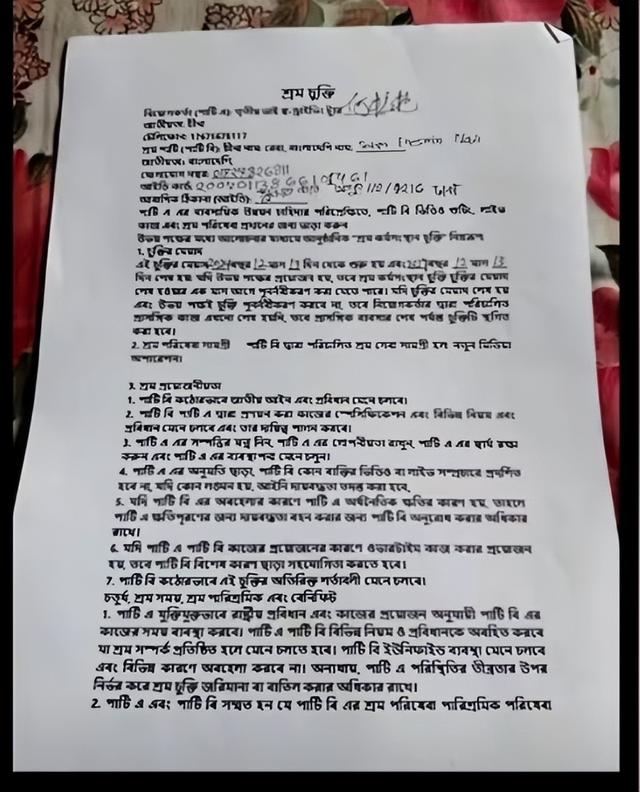 শ্রম চুক্তি
নিয়োগকর্তা (পার্টি এ):
জাতীয়তা: চীন
শ্রম পার্টি (পার্টি বি):
জাতীয়তা: বাংলাদেশি
যোগাযোগ নম্বর:
আইডি কার্ড:
আবাসিক ঠিকানা (আইডি):
পার্টি এ এর ব্যবসায়িক উন্নয়ন চাহিদার পরিপ্রেক্ষিতে, পার্টি বি ভিডিও শুটিং, লাইভ
কাজ এবং শ্রম পরিষেবা প্রদানের জন্য ভাড়া করুন
উভয় পক্ষের মধ্যে আলোচনার মাধ্যমে আনুষ্ঠানিক "শ্রম কর্মসংস্থান চুক্তি" নিম্নরূপ
1. চুক্তির মেয়াদ
এই চুক্তির মেয়াদ 2024 বছর 12 মাস দিন থেকে শুরু হয় এবং 2027 বছর 12 মাস 13
দিন শেষ হয়, যদি উভয় পক্ষের প্রয়োজন হয়, তবে শ্রম কর্মসংস্থান চুক্তি চুক্তির মেয়াদ
শেষ হওয়ার এক মাস আগে পুনর্নবীকরণ করা যেতে পারে। যদি চুক্তির মেয়াদ শেষ হয়
এবং উভয় পক্ষই চুক্তি পুনর্নবীকরণ করবে না, তবে নিয়োগকর্তার দ্বারা পরিচালিত
প্রাসঙ্গিক কাজ এখনো শেষ হয়নি, তবে প্রাসঙ্গিক ব্যবসার শেষ পর্যন্ত চুক্তিটি স্থগিত
করা হবে।
2. শ্রম পরিষেবা সামগ্রী পার্টি বি দ্বারা পরিচালিত শ্রম সেবা সামগ্রী হল নতুন মিডিয়া
অপারেশন।
3. শ্রম প্রয়োজনীয়তা
1. পার্টি বি কঠোরভাবে জাতীয় আইন এবং প্রবিধান মেনে চলবে।
2. পার্টি বি পার্টি এ দ্বারা প্রণয়ন করা কাজের স্পেসিফিকেশন এবং বিভিন্ন নিয়ম এবং
প্রবিধান মেনে চলবে এবং তার দায়িত্ব পালন করবে।
3. পার্টি এ এর সম্পত্তির যত্ন নিন, পার্টি এ এর গোপনীয়তা রাখুন, পার্টি এ এর স্বার্থ রক্ষা
করুন এবং পার্টি এ এর ব্যবস্থাপনা মেনে চলুন।
4. পার্টি এ এর অনুমতি ছাড়া, পার্টি বি কোন ব্যক্তির ভিডিও বা লাইভ সম্প্রচারে প্রদর্শিত
হবে না, যদি কোন লঙ্ঘন হয়, আইনি দায়বদ্ধতা তদন্ত করা হবে,
5. যদি পার্টি বি এর অবহেলার কারণে পার্টি এ অর্থনৈতিক ক্ষতির কারণ হয়, তাহলে
পার্টি এ ক্ষতিপূরণের জন্য দায়বদ্ধতা বহন করার জন্য পার্টি বি অনুরোধ করার অধিকার
রাখে।
6. যদি পার্টি এ পার্টি বি কাজের প্রয়োজনের কারণে ওভারটাইম কাজ করার প্রয়োজন
হয়, তবে পার্টি বি বিশেষ কারণ ছাড়া সহযোগিতা করতে হবে।
7. পার্টি বি কঠোরভাবে এই চুক্তির অতিরিক্ত শর্তাবলী মেনে চলবে।
চতুর্থ, শ্রম সময়, শ্রম পারিশ্রমিক এবং বেনিফিট
1. পার্টি এ যুক্তিযুক্তভাবে রাষ্ট্রীয় প্রবিধান এবং কাজের প্রয়োজন অনুযায়ী পার্টি বি এর
কাজের সময় ব্যবস্থা করবে। পার্টি এ পার্টি বি বিভিন্ন নিয়ম ও প্রবিধানকে অবহিত করবে
যা শ্রম সম্পর্ক প্রতিষ্ঠিত হলে মেনে চলতে হবে। পার্টি বি ইউনিফাইড ব্যবস্থা মেনে চলবে
এবং বিভিন্ন কারণে অবহেলা করবে না। অন্যথায়, পার্টি এ পরিস্থিতির তীব্রতার উপর
নির্ভর করে শ্রম চুক্তি জরিমানা বা বাতিল করার অধিকার রাখে।
2. পার্টি এ এবং পার্টি বি সম্মত হন যে পার্টি বি এর শ্রম পরিষেবা পারিশ্রমিক পরিষেবা